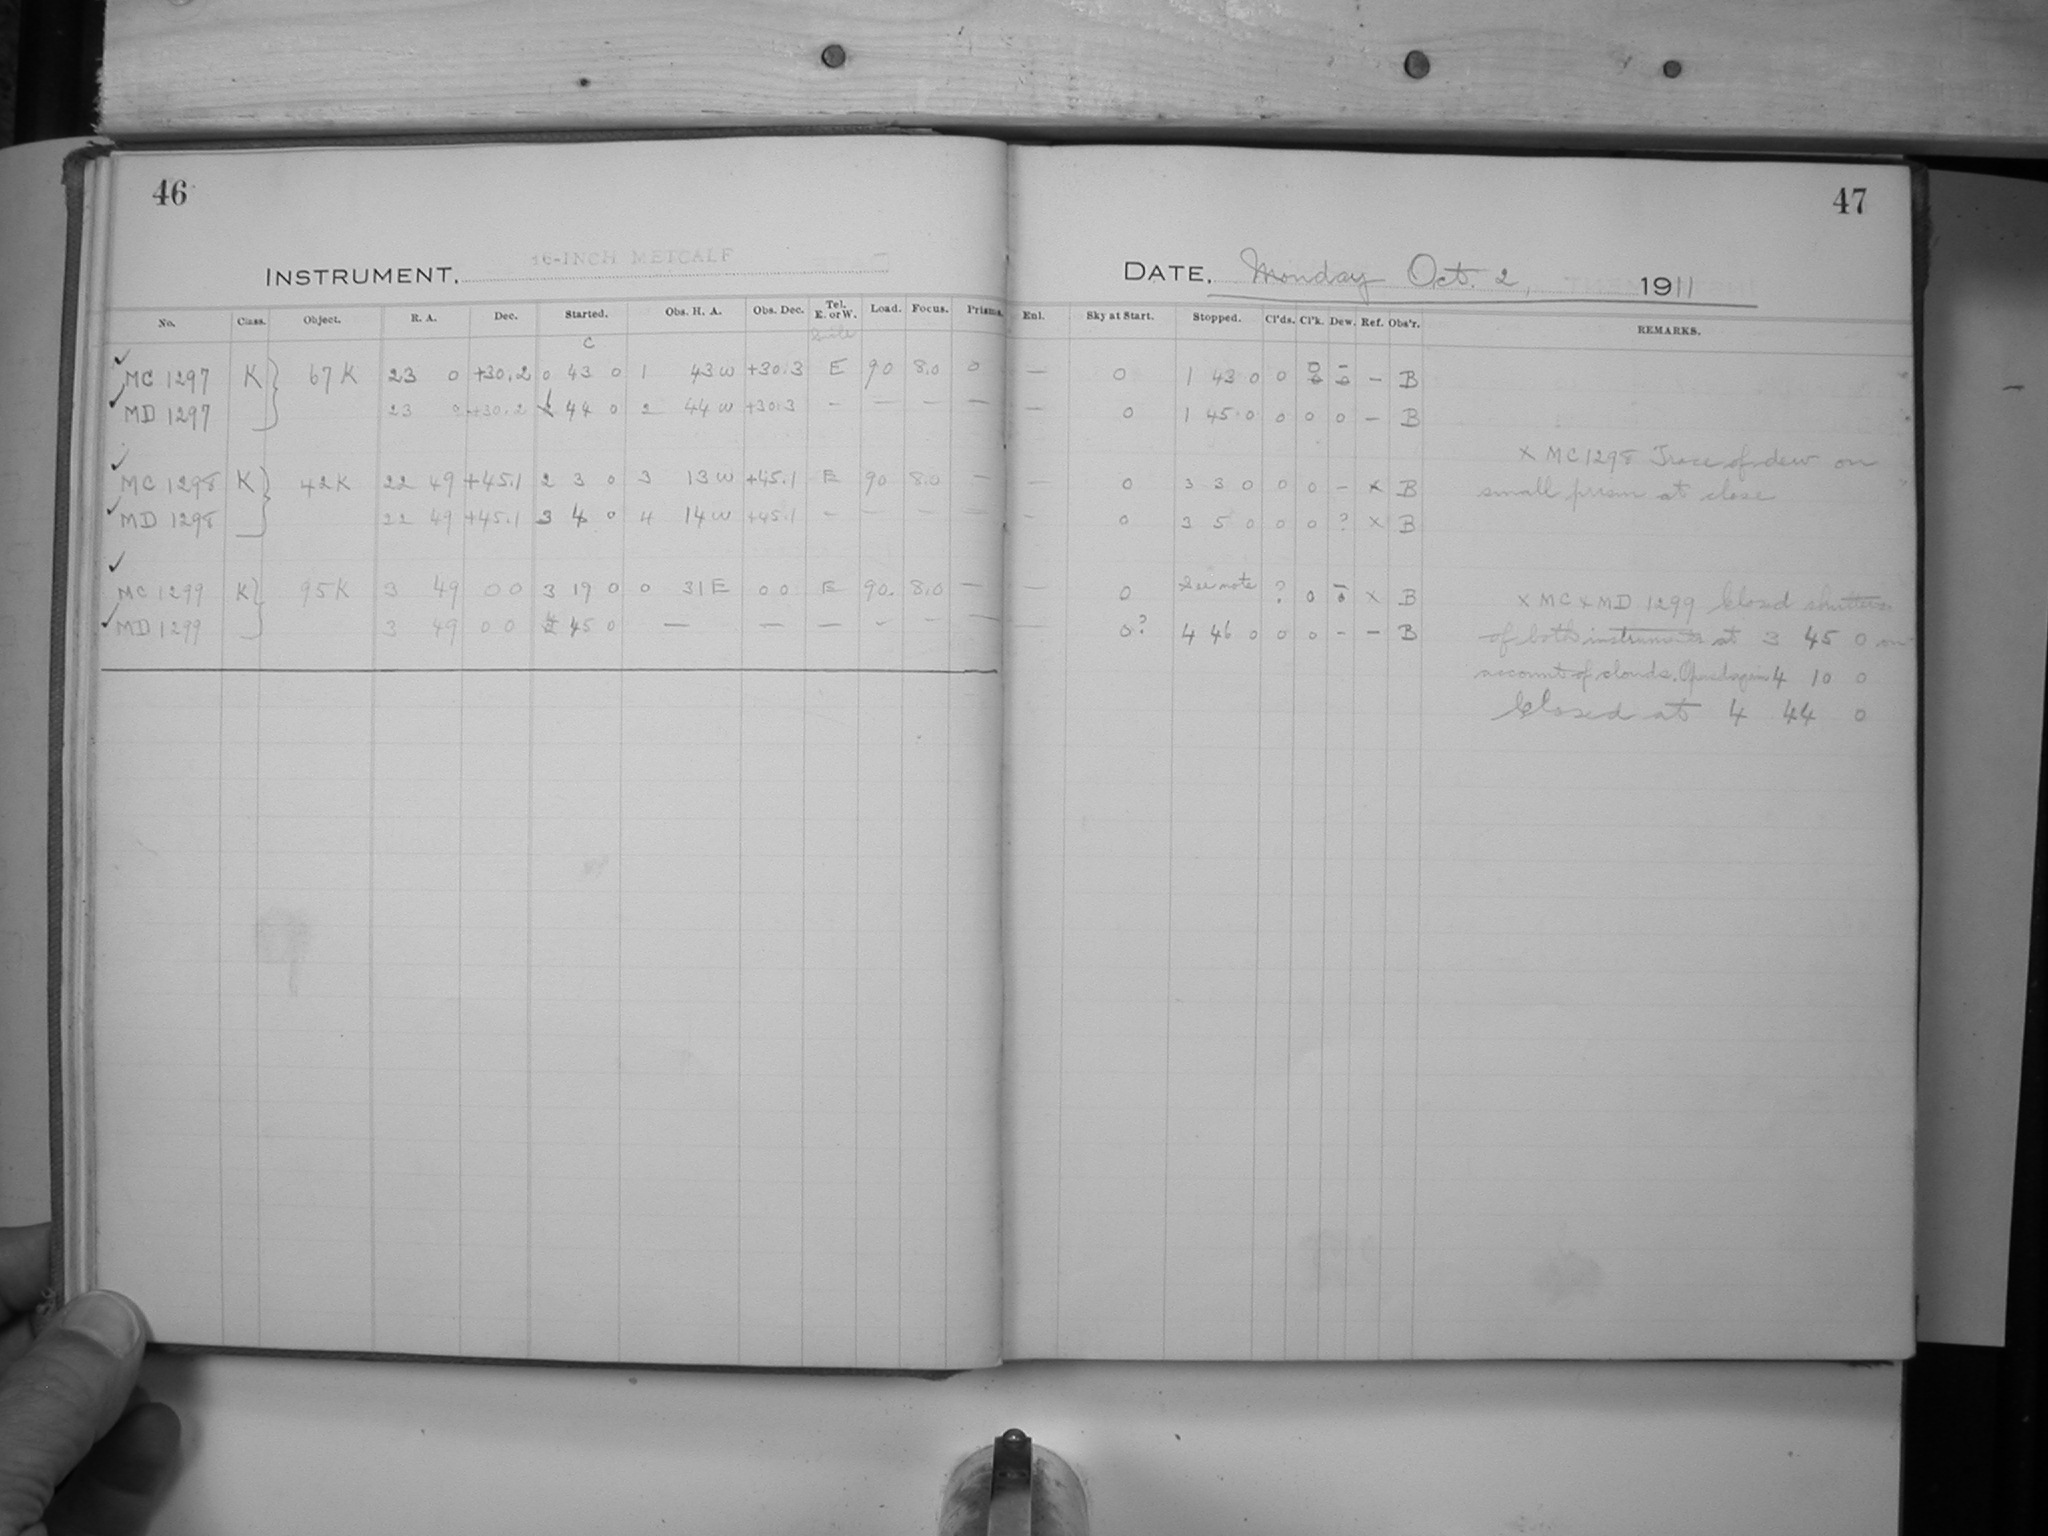 46
47
INSTRUMENT, 16-INCH METCALF
DATE, Monday Oct. 2, 1911
No. Class. Object. R. A. Dec. Started. Obs. H. A. Obs. Dec. Tel. E. or W. Load. Focus. Prisms. Enl. Sky at Start. Stopped. Cl'ds. Cl'k. Dew. Ref. Obs'r. REMARKS.
C
MC 1297 K 67 K 23 0 +30.2 0 43 0 1 43 W +30.3 E 90 8.0 0 — 0 1 43 0 0 0 — B
MD 1297 23 0 +30.2 1 44 0 2 44 W +30.3 — — — — — 0 1 45 0 0 0 0 — B
MC 1298 K 42 K 22 49 +45.1 2 3 0 3 13 W +45.1 E 90 8.0 — — 0 3 3 0 0 0 — x B
MD 1298 22 49 +45.1 3 4 0 4 14 W +45.1 — — — — — 0 3 5 0 0 0 ? x B
x MC 1298 Trace of dew on
small prism at close
MC 1299 K 95 K 3 49 0 0 3 19 0 0 31 E 0 0 E 90. 8.0 — — 0 See note ? 0 x B
MD 1299 3 49 0 0 4 45 0 — — — — — — — 0? 4 46 0 0 0 — — B
x MC x MD 1299 Closed shutters
of both instruments at 3 45 0 on
account of clouds. Opened again 4 10 0
Closed at 4 44 0